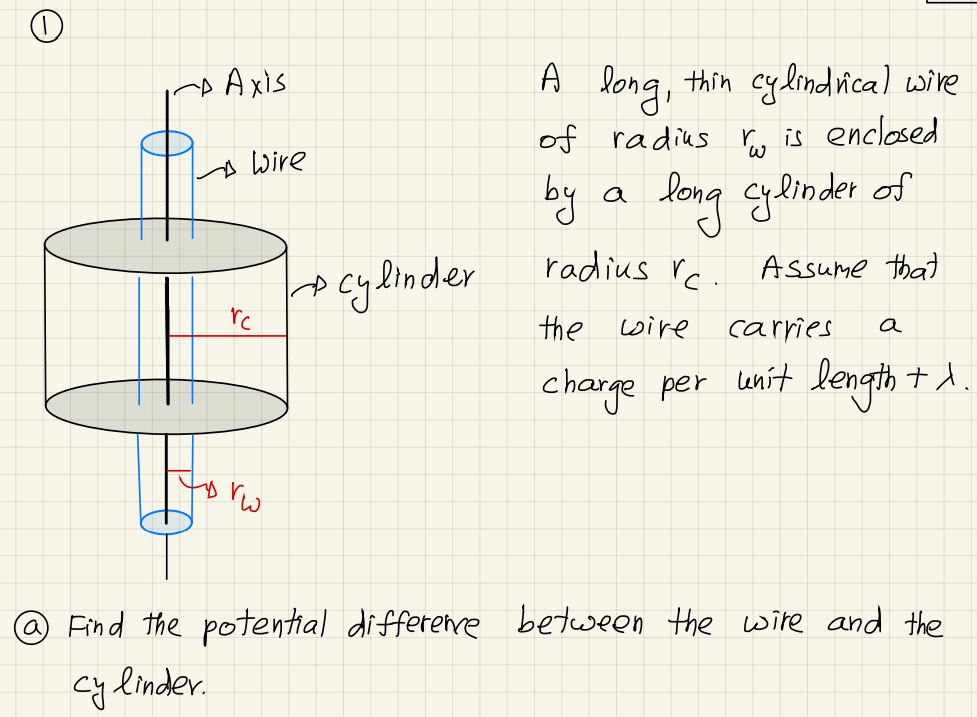 ①
Axis
wire
cylinder
rc
rw
A long, thin cylindrical wire
of radius rw is enclosed
by a long cylinder of
radius rc. Assume that
the wire carries a
charge per unit length + λ.
ⓐ Find the potential difference between the wire and the
cylinder.